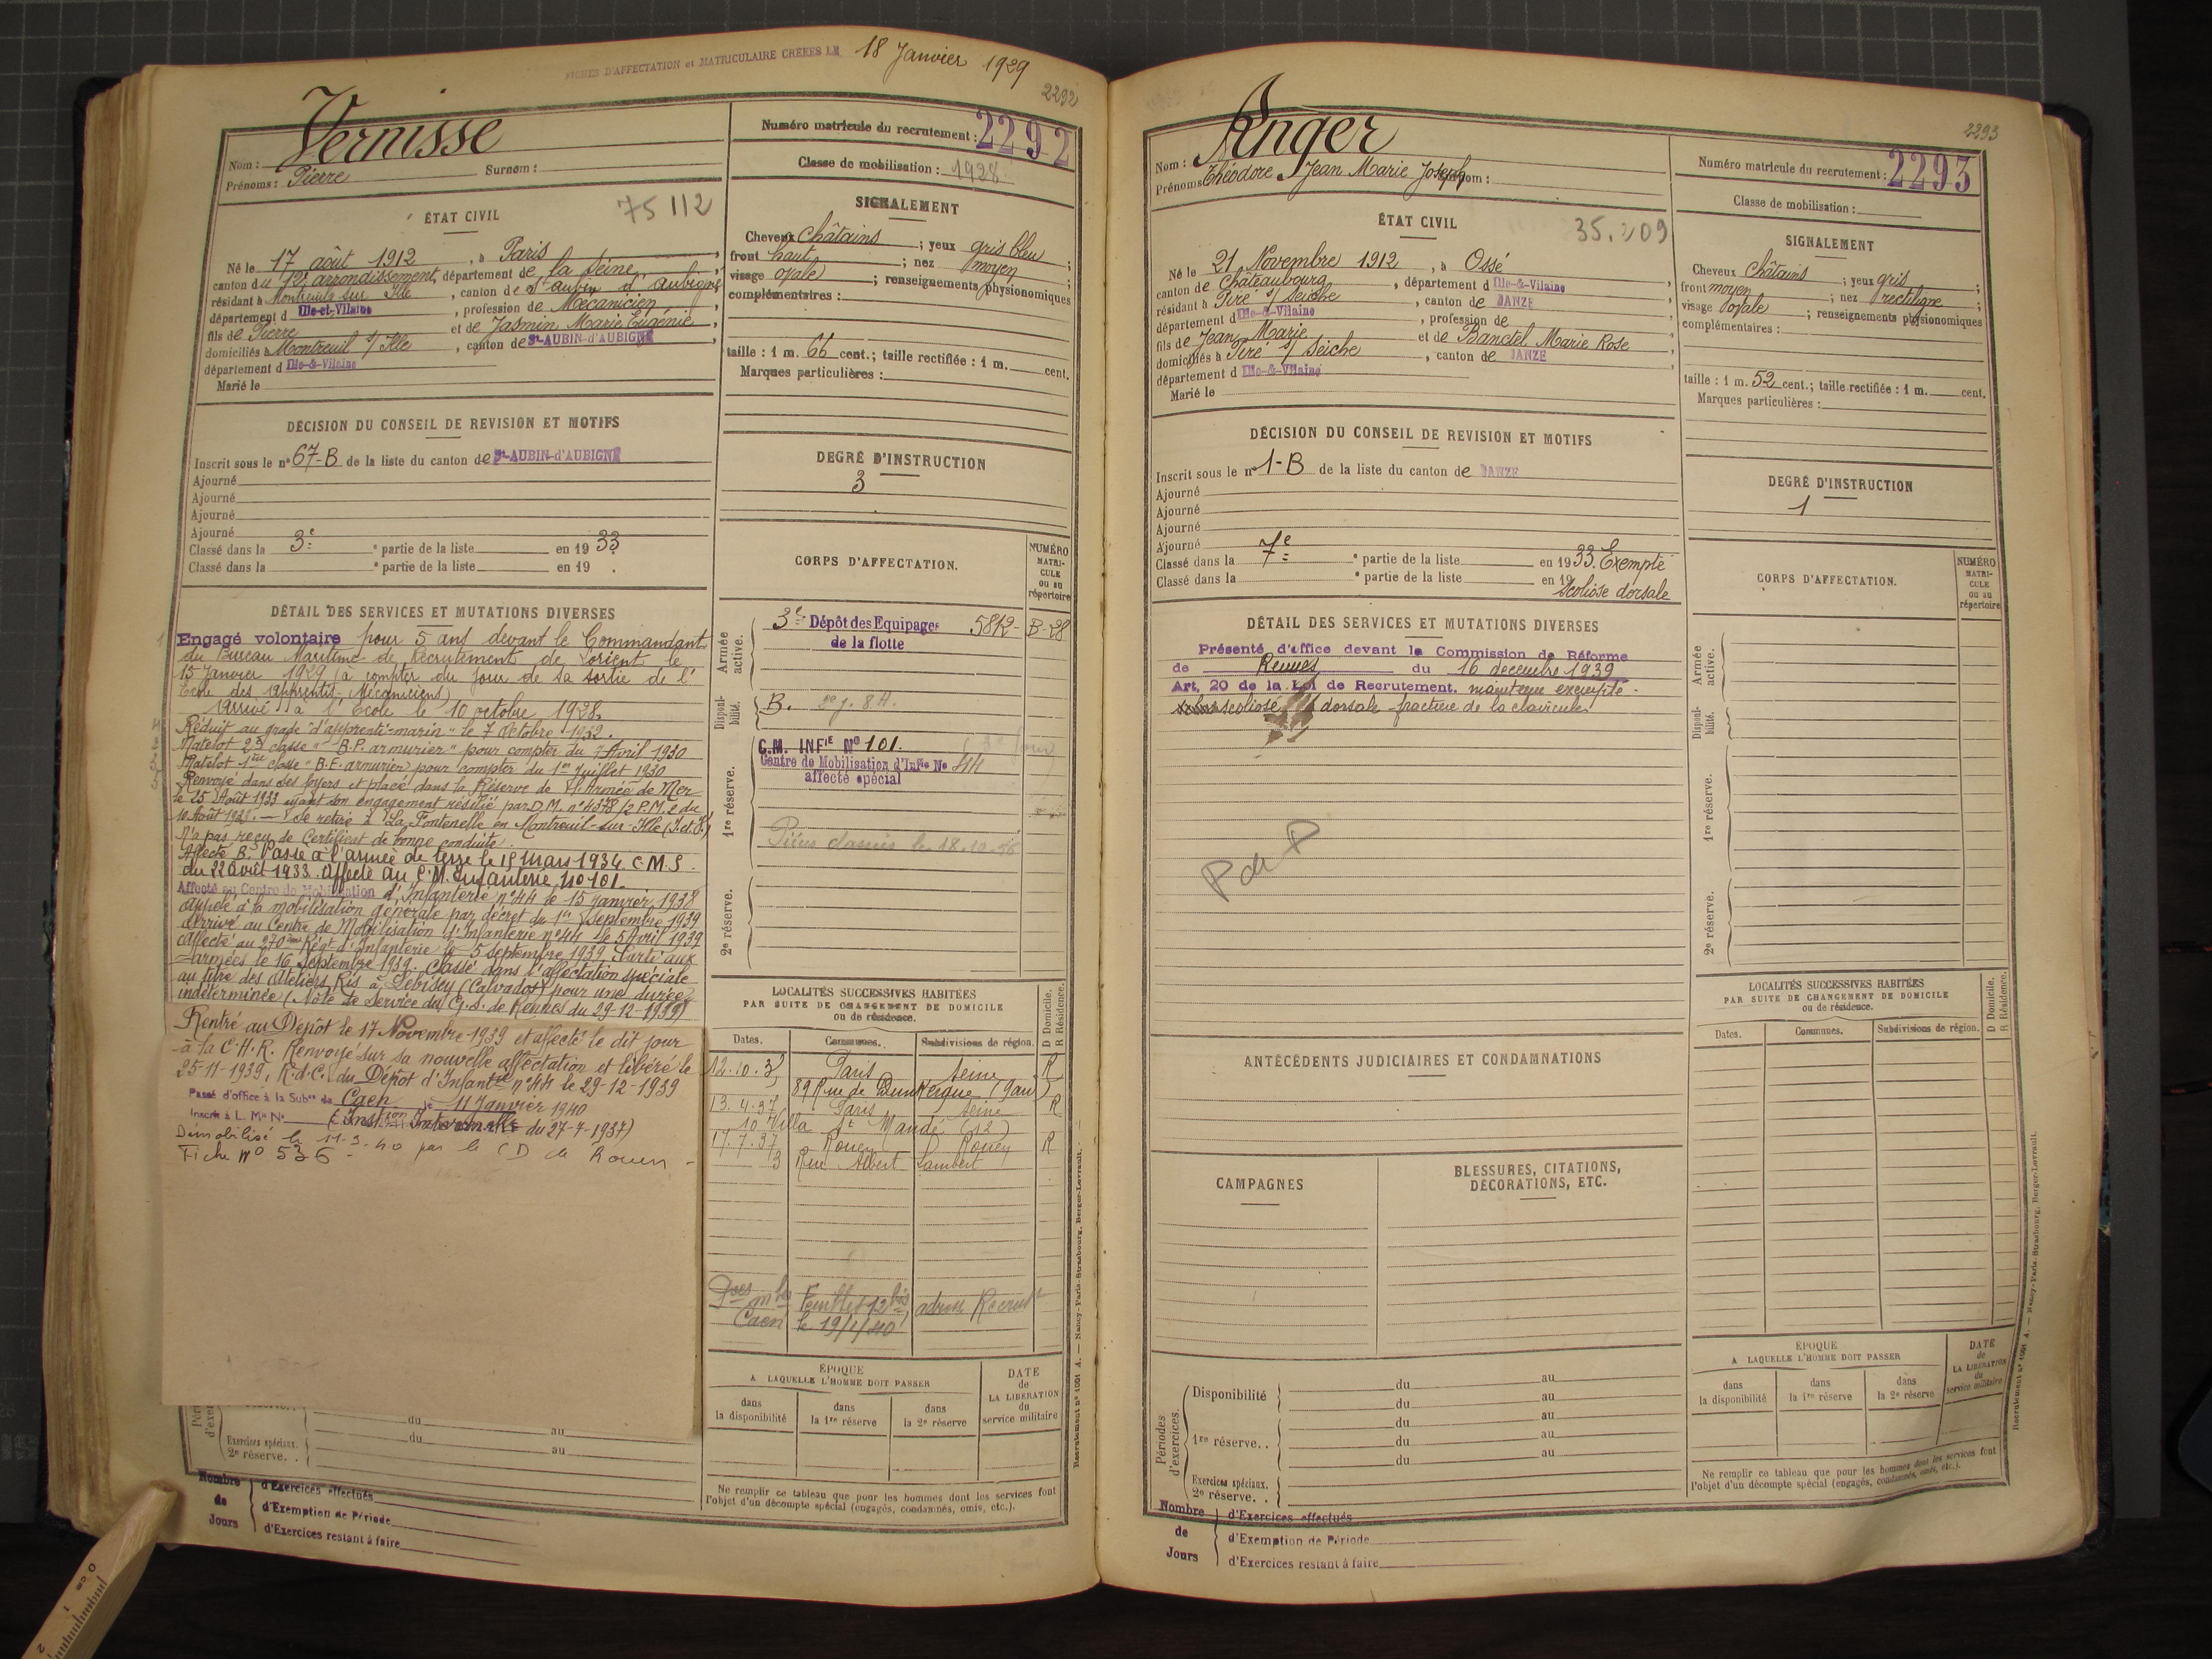 FICHES D'AFFECTATION et MATRICULAIRE CRÉÉES LE 18 Janvier 1929
2292
Nom : Vernisse
Prénoms : Pierre Surnom :
Numéro matricule du recrutement : 2292
Classe de mobilisation : 1928
ÉTAT CIVIL
75 112
Né le 17 août 1912, à Paris,
canton du 12e arrondissement, département de la Seine,
résidant à Montreuil sur Ille, canton de St aubin d'aubigné,
département d Ille-et-Vilaine, profession de Mécanicien,
fils de Pierre et de Jasmin Marie Eugénie,
domiciliés à Montreuil s/ Ille, canton de St-AUBIN-d'AUBIGNÉ,
département d Ille-&-Vilaine
Marié le
SIGNALEMENT
Cheveux châtains ; yeux gris bleu ;
front haut ; nez moyen ;
visage ovale ; renseignements physionomiques
complémentaires :
taille : 1 m. 66 cent.; taille rectifiée : 1 m. cent.
Marques particulières :
DÉCISION DU CONSEIL DE REVISION ET MOTIFS
Inscrit sous le n° 67-B de la liste du canton de St-AUBIN-d'AUBIGNÉ
Ajourné
Ajourné
Ajourné
Ajourné
Classé dans la 3e e partie de la liste en 19 33
Classé dans la e partie de la liste en 19 .
DEGRÉ D'INSTRUCTION
3
DÉTAIL DES SERVICES ET MUTATIONS DIVERSES
Engagé volontaire pour 5 ans devant le Commandant
du Bureau Maritime de Recrutement de Lorient le
15 Janvier 1929 (à compter du jour de sa sortie de l'
Ecole des apprentis-Mécaniciens)
arrivé à l'Ecole le 10 octobre 1928.
Réduit au grade "d'apprenti-marin" le 7 Octobre 1932.
Matelot 2e classe "B.P. armurier" pour compter du 7 Avril 1930
Matelot 1ère classe "B.E. armurier) pour compter du 1er Juillet 1930
Renvoyé dans ses foyers et placé dans la Réserve de l'Armée de Mer
le 25 Août 1933 ayant son engagement résilié par D.M. n° 4378/2 P.M. 2 du
10 Août 1933. — Se retire à "La Fontenelle en Montreuil-sur-Ille (I.et.V.)
N'a pas reçu de Certificat de bonne conduite.
Affecté B. Passé à l'armée de terre le 15 Mars 1934. C.M.S.
du 22 Août 1933. Affecté au C.M. Infanterie N° 101.
Affecté au Centre de Mobilisation d'Infanterie n° 44 le 15 janvier 1938
Appelé à la mobilisation générale par décret du 1er Septembre 1939
Arrivé au Centre de Mobilisation d'Infanterie n° 44 le 5 Avril 1939
Affecté au 270ème Régt d'Infanterie le 5 septembre 1939. Parti aux
armées le 16 Septembre 1939. Classé dans l'affectation spéciale
au titre des Ateliers Ris à Lébisey (Calvados) pour une durée
indéterminée (Note de Service du G.S. de Rennes du 29-12-1939)
Rentré au Dépôt le 17 Novembre 1939 et affecté le dit jour
à la C.H.R. Renvoyé sur sa nouvelle affectation et libéré le
25-11-1939, R.d.C. du Dépôt d'Infanterie n° 44 le 29-12-1939
Passé d'office à la Subon de Caen le 11 Janvier 1940
Inscrit à L. Mle N° (Instion Interminlle du 27-7-1937)
Démobilisé le 11-3-40 par le CD de Rouen -
Fiche N° 536
CORPS D'AFFECTATION.
NUMÉRO MATRICULE ou au répertoire
Armée active.
3e Dépôt des Equipages 5842- B-28
de la flotte
Disponibilité.
B.
1re réserve.
C.M. INFIE N° 101.
Centre de Mobilisation d'Infie N° 44
affecté spécial
Pièces classées le 18.10.56
2e réserve.
LOCALITÉS SUCCESSIVES HABITÉES
PAR SUITE DE CHANGEMENT DE DOMICILE
ou de résidence.
D Domicile.
R Résidence.
Dates. Communes. Subdivisions de région.
Paris Seine R
89 Rue de Dunkerque (9arr)
13.4.37 Paris Seine R
10 Villa St Mandé (12)
17.7.37 Rouen Rouen R
3 Rue Albert Lambert
Feuillet 12 bis adressé Recrutt
Caen le 19/1/40
ÉPOQUE
A LAQUELLE L'HOMME DOIT PASSER
dans la disponibilité
dans la 1re réserve
dans la 2e réserve
DATE de LA LIBÉRATION du service militaire
Exercices spéciaux.
2e réserve. .
du au
du au
Nombre de Jours
d'Exercices effectués
d'Exemption de Période
d'Exercices restant à faire
Ne remplir ce tableau que pour les hommes dont les services font
l'objet d'un décompte spécial (engagés, condamnés, omis, etc.).
Recrutement n° 1001 A. — Nancy-Paris-Strasbourg, Berger-Levrault.
2293
Nom : Anger
Prénoms Théodore Jean Marie Joseph Surnom :
Numéro matricule du recrutement : 2293
Classe de mobilisation :
ÉTAT CIVIL
35.209
Né le 21 Novembre 1912, à Ossé,
canton de Châteaubourg, département d Ille-&-Vilaine,
résidant à Piré s/ Seiche, canton de JANZE,
département d Ille-&-Vilaine, profession de
fils de Jean Marie et de Banctel Marie Rose,
domiciliés à Piré s/ Seiche, canton de JANZE,
département d Ille-&-Vilaine
Marié le
SIGNALEMENT
Cheveux châtains ; yeux gris ;
front moyen ; nez rectiligne ;
visage ovale ; renseignements physionomiques
complémentaires :
taille : 1 m. 52 cent.; taille rectifiée : 1 m. cent.
Marques particulières :
DÉCISION DU CONSEIL DE REVISION ET MOTIFS
Inscrit sous le n° 1-B de la liste du canton de JANZE
Ajourné
Ajourné
Ajourné
Ajourné
Classé dans la 7e e partie de la liste en 19 33. Exempté
Classé dans la e partie de la liste en 19
Scoliose dorsale
DEGRÉ D'INSTRUCTION
1
DÉTAIL DES SERVICES ET MUTATIONS DIVERSES
Présenté d'office devant la Commission de Réforme
de Rennes du 16 décembre 1939
Art. 20 de la Loi de Recrutement. maintenu exempté.
scoliose dorsale - fracture de la clavicule
P de D
CORPS D'AFFECTATION.
NUMÉRO MATRICULE ou au répertoire
Armée active.
Disponibilité.
1re réserve.
2e réserve.
ANTÉCÉDENTS JUDICIAIRES ET CONDAMNATIONS
CAMPAGNES
BLESSURES, CITATIONS,
DÉCORATIONS, ETC.
LOCALITÉS SUCCESSIVES HABITÉES
PAR SUITE DE CHANGEMENT DE DOMICILE
ou de résidence.
D Domicile.
R Résidence.
Dates. Communes. Subdivisions de région.
Périodes d'exercices.
Disponibilité du au
du au
1re réserve. . du au
du au
du au
Exercices spéciaux.
2e réserve. .
ÉPOQUE
A LAQUELLE L'HOMME DOIT PASSER
dans la disponibilité
dans la 1re réserve
dans la 2e réserve
DATE de LA LIBÉRATION du service militaire
Ne remplir ce tableau que pour les hommes dont les services font
l'objet d'un décompte spécial (engagés, condamnés, omis, etc.).
Nombre de Jours
d'Exercices effectués
d'Exemption de Période
d'Exercices restant à faire
Recrutement n° 1001 A. — Nancy-Paris-Strasbourg, Berger-Levrault.
0 cm 1 2